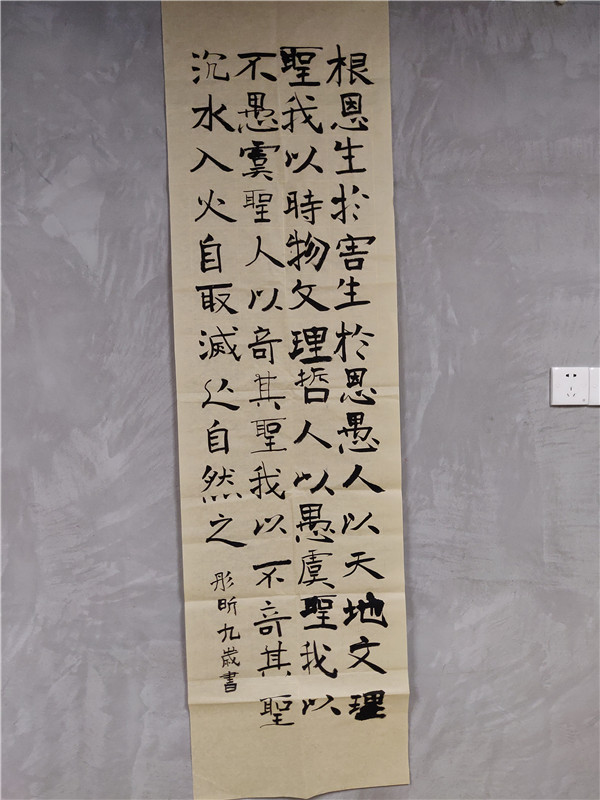 根恩生於害生於恩愚人以天地文理
聖我以時物文理哲人以愚虞聖我以
不愚虞聖人以奇其聖我以不奇其聖
沉水入火自取滅亾自然之
彤昕九歲書